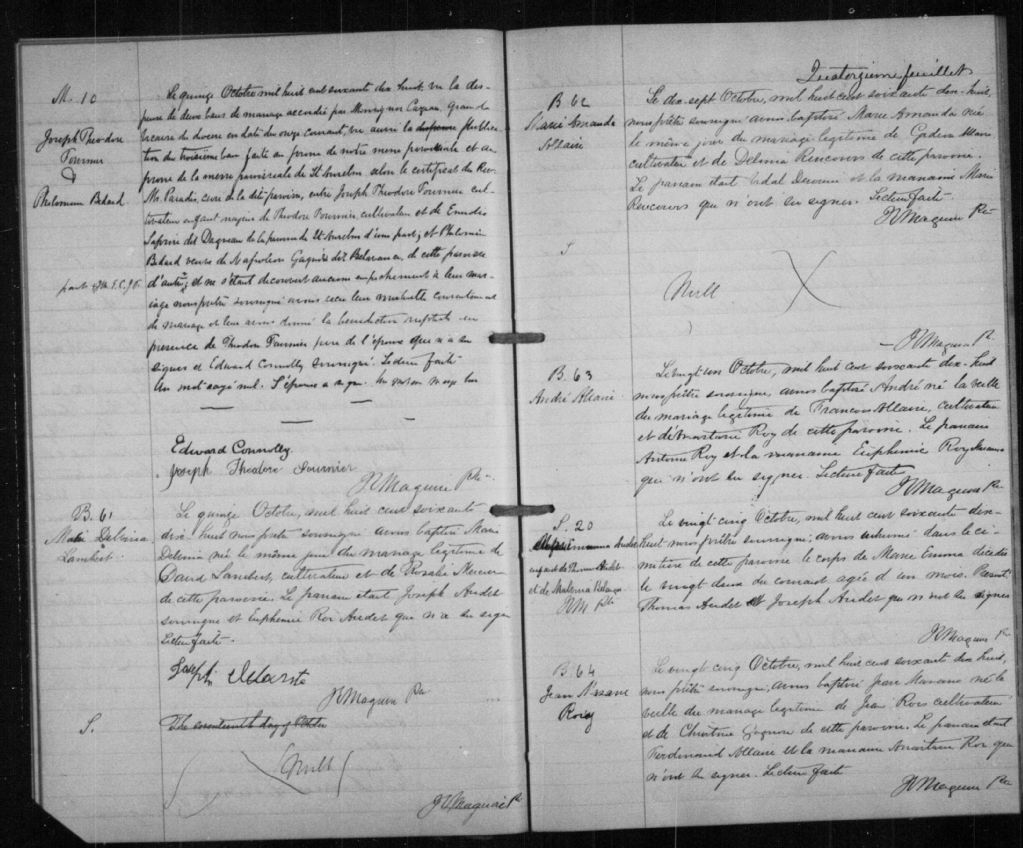 M. 10
Joseph Théodore
Fournier
&
Philomène Bedard
Le quinze Octobre mil huit cent soixante dix huit, vu la dis-
pense de deux bans de mariage accordée par Monseigneur Cazeau, Grand
Vicaire du diocèse en date du onze courant, vu aussi la publica-
tion du troisième ban faite au prone de notre messe paroissiale et au
prone de la messe paroissiale de St Aurelien selon le certificat du Rev.
Mr. Paradis, curé de la dite paroisse, entre Joseph Théodore Fournier cul-
tivateur enfant majeur de Théodore Fournier, cultivateur et de
dit Dagneau de la paroisse de St Aurelien d'une part; et Philomène
Bedard veuve de Napoléon Gagnier de cette paroisse
d'autre part et ne s'étant découvert aucun empêchement à leur mar-
iage nous prêtre soussigné avons reçu leur mutuelle consentement
de mariage et leur avons donné la bénédiction nuptiale en
présence de Théodore Fournier père de l'époux qui n'a su
signer et Edward Connolly soussigné. Lecture faite
Un mot rayé nul. L'époux a signé.
Edward Connolly
Joseph Théodore Fournier
JVMaguire Ptre
B. 61
Marie Delvina
Lambert
Le quinze Octobre, mil huit cent soixante
dix huit nous prêtre soussigné avons baptisé Marie
Delvina née le même jour du mariage légitime de
David Lambert, cultivateur et de Rosalie Mercier
de cette paroisse. Le parrain était Joseph Audet
soussigné et Euphémie Roi Audet qui n'a su signer
Lecture faite.
Joseph
JVMaguire Ptre
S.
The seventeenth day of October
Null
JVMaguire Ptre
Quatorzième feuillet
B 62
Marie Amanda
Allaire
Le dix-sept Octobre, mil huit cent soixante dix-huit,
nous prêtre soussigné avons baptisé Marie Amanda née
le même jour du mariage légitime de
cultivateur et de Delima Rancours de cette paroisse.
Le parrain était Vidal et la marraine Marie
Rancours qui n'ont su signer. Lecture faite.
JVMaguire Ptre
S
Null.
JVMaguire Ptre
B. 63
André Allaire
Le vingt un Octobre, mil huit cent soixante dix-huit
nous prêtre soussigné, avons baptisé André né la veille
du mariage légitime de François Allaire, cultivateur
et d'Anastasie Roy de cette paroisse. Le parrain
Antoine Roy et la marraine Euphémie Roy
qui n'ont su signer. Lecture faite
JVMaguire Ptre
S. 20
Emma Audet
enfant de Thomas Audet
et de Malvina Belanger
JVM Ptre
Le vingt cinq Octobre, mil huit cent soixante dix-
huit nous prêtre soussigné, avons inhumé dans le ci-
metière de cette paroisse le corps de Marie Emma décédée
le vingt deux du courant agée d'un mois. Présents
Thomas Audet et Joseph Audet qui n'ont su signer
JVMaguire Ptre
B 64
Jean Nazaire
Roy
Le vingt cinq Octobre, mil huit cent soixante dix huit,
nous prêtre soussigné, avons baptisé Jean Nazaire né la
veille du mariage légitime de Jean Roi cultivateur
et de Christine Gagnon de cette paroisse. Le parrain était
Ferdinand Allaire et la marraine Anastasie Roi qui
n'ont su signer. Lecture faite
JVMaguire Ptre